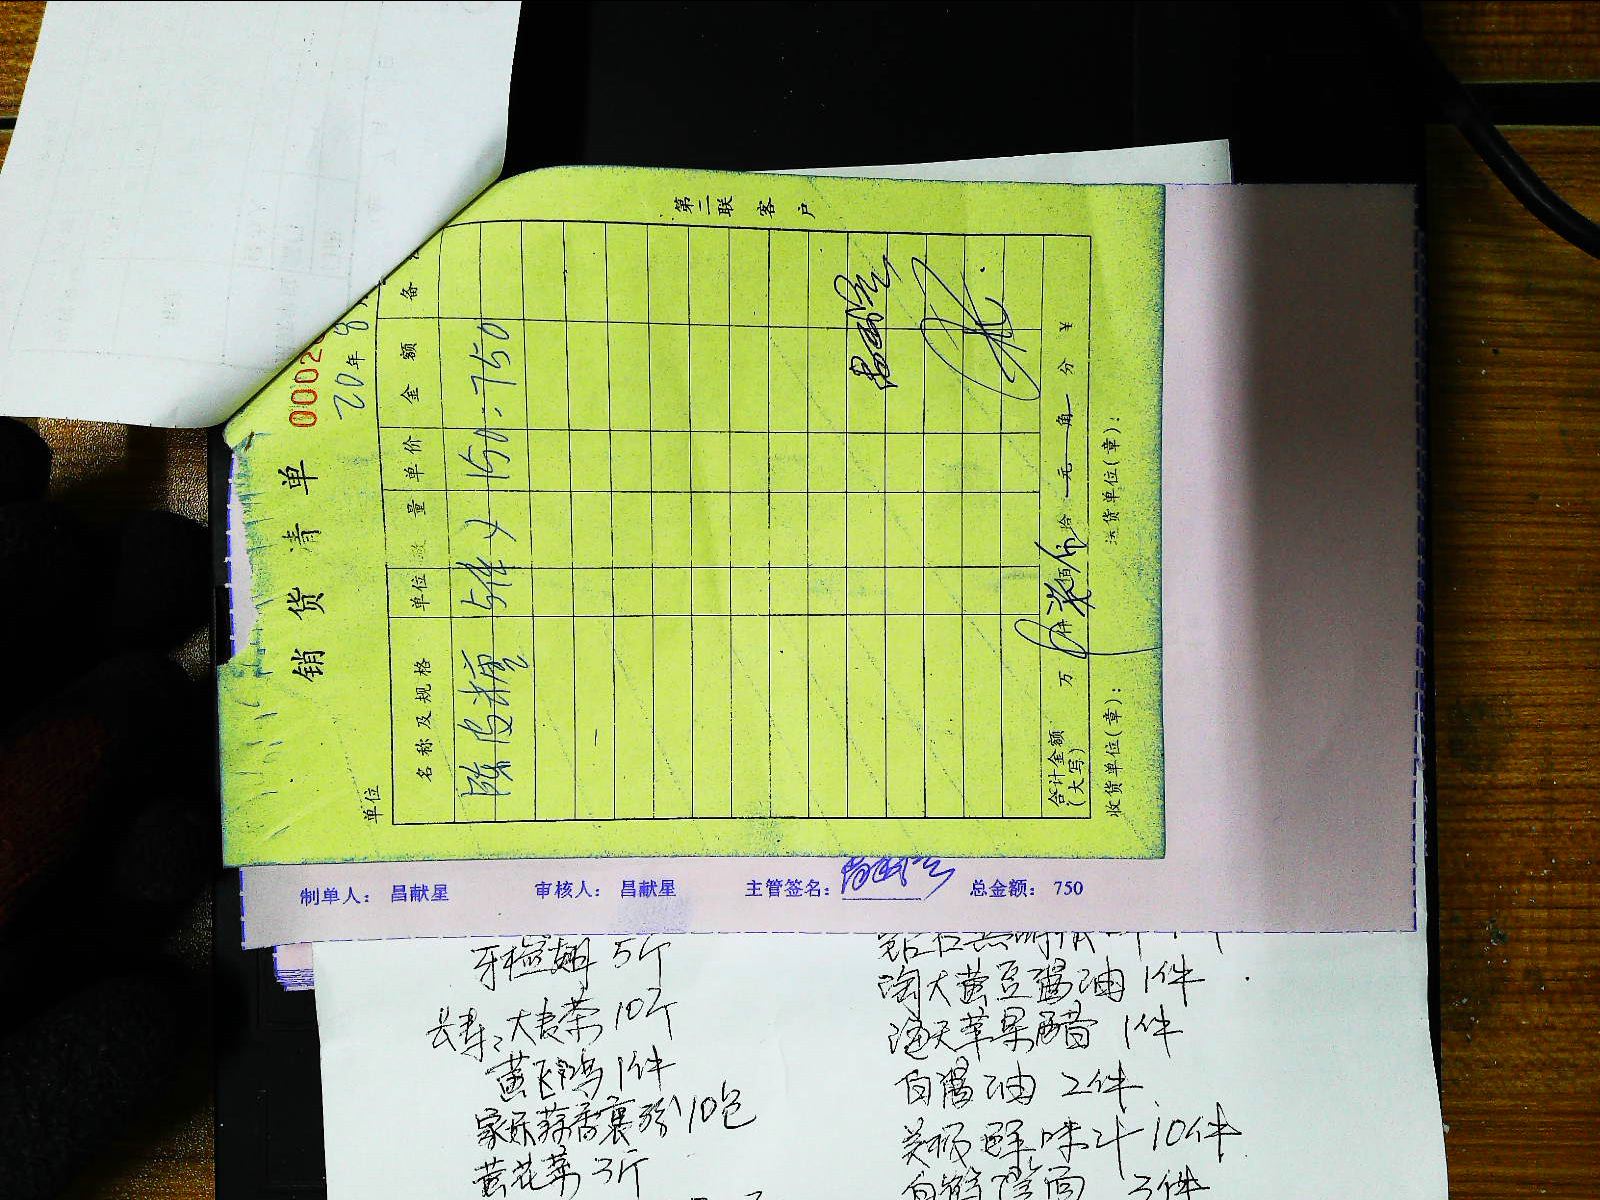 销货清单
00026
20年8
单位
名称及规格 单位 数量 单价 金额 备
5件 × 150 = 750
合计金额(大写) 万 仟柒佰伍拾 元 角 分 ¥
收货单位(章): 送货单位(章):
第二联 客户
制单人: 昌献星 审核人: 昌献星 主管签名: 总金额: 750
5斤
长寿: 大麦茶 10斤
黄飞鸿 1件
家乐蒜香裹粉 10包
黄花菜 3斤
淘大黄豆酱油 1件
海天苹果醋 1件
白酱油 2件
美极鲜味汁 10件
3件